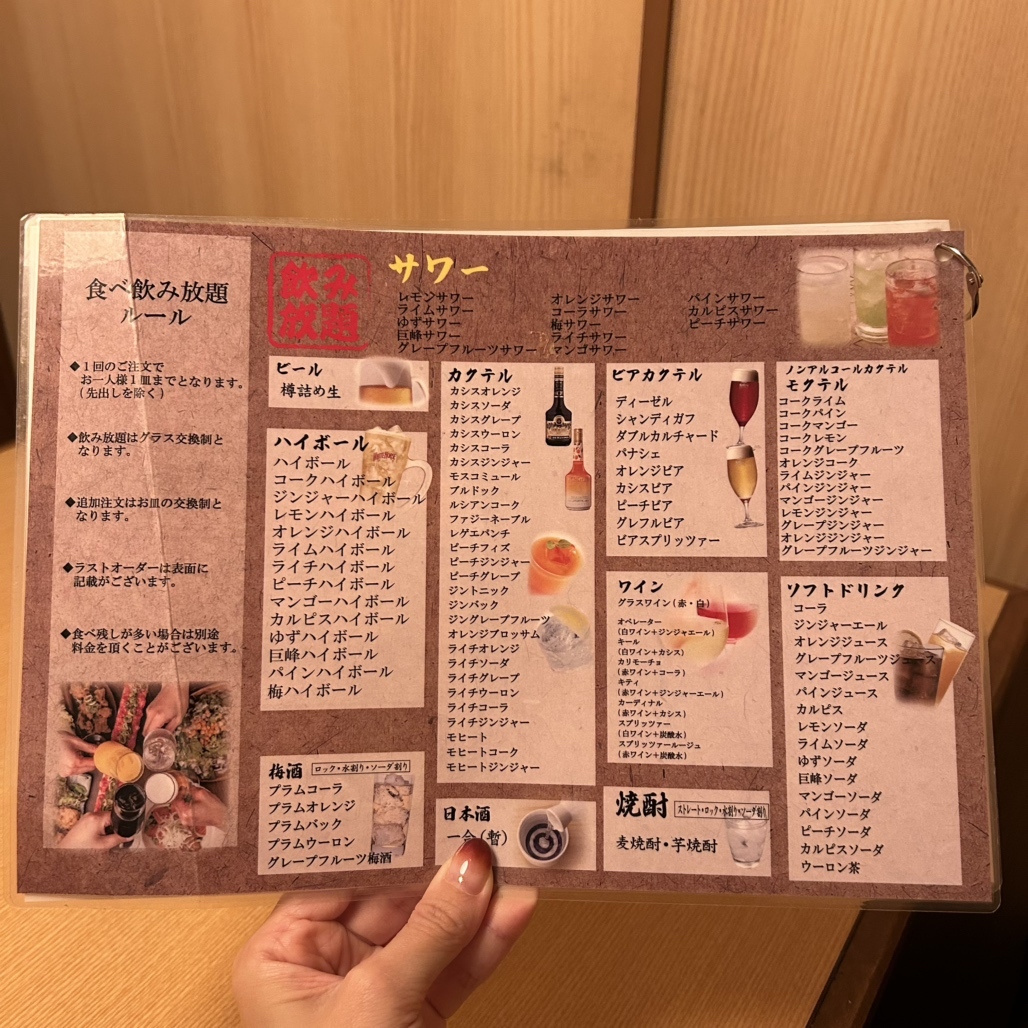 食べ飲み放題
ルール
◆1回のご注文で
お一人様1皿までとなります。
(先出しを除く)
◆飲み放題はグラス交換制と
なります。
◆追加注文はお皿の交換制と
なります。
◆ラストオーダーは表面に
記載がございます。
◆食べ残しが多い場合は別途
料金を頂くことがございます。
飲み
放題
サワー
レモンサワー
ライムサワー
ゆずサワー
巨峰サワー
グレープフルーツサワー
オレンジサワー
コーラサワー
梅サワー
ライチサワー
マンゴサワー
パインサワー
カルピスサワー
ピーチサワー
ビール
樽詰め生
ハイボール
ハイボール
コークハイボール
ジンジャーハイボール
レモンハイボール
オレンジハイボール
ライムハイボール
ライチハイボール
ピーチハイボール
マンゴーハイボール
カルピスハイボール
ゆずハイボール
巨峰ハイボール
パインハイボール
梅ハイボール
梅酒 ロック・水割り・ソーダ割り
プラムコーラ
プラムオレンジ
プラムバック
プラムウーロン
グレープフルーツ梅酒
カクテル
カシスオレンジ
カシスソーダ
カシスグレープ
カシスウーロン
カシスコーラ
カシスジンジャー
モスコミュール
ブルドック
ルシアンコーク
ファジーネーブル
レゲエパンチ
ピーチフィズ
ピーチジンジャー
ピーチグレープ
ジントニック
ジンバック
ジングレープフルーツ
オレンジブロッサム
ライチオレンジ
ライチソーダ
ライチグレープ
ライチウーロン
ライチコーラ
ライチジンジャー
モヒート
モヒートコーク
モヒートジンジャー
日本酒
一合(暫)
ビアカクテル
ディーゼル
シャンディガフ
ダブルカルチャード
パナシェ
オレンジビア
カシスビア
ピーチビア
グレフルビア
ビアスプリッツァー
ワイン
グラスワイン(赤・白)
オペレーター
(白ワイン+ジンジャエール)
キール
(白ワイン+カシス)
カリモーチョ
(赤ワイン+コーラ)
キティ
(赤ワイン+ジンジャーエール)
カーディナル
(赤ワイン+カシス)
スプリッツァー
(白ワイン+炭酸水)
スプリッツァールージュ
(赤ワイン+炭酸水)
焼酎 ストレート・ロック・水割り・ソーダ割り
麦焼酎・芋焼酎
ノンアルコールカクテル
モクテル
コークライム
コークパイン
コークマンゴー
コークレモン
コークグレープフルーツ
オレンジコーク
ライムジンジャー
パインジンジャー
マンゴージンジャー
レモンジンジャー
グレープジンジャー
オレンジジンジャー
グレープフルーツジンジャー
ソフトドリンク
コーラ
ジンジャーエール
オレンジジュース
グレープフルーツジュース
マンゴージュース
パインジュース
カルピス
レモンソーダ
ライムソーダ
ゆずソーダ
巨峰ソーダ
マンゴーソーダ
パインソーダ
ピーチソーダ
カルピスソーダ
ウーロン茶